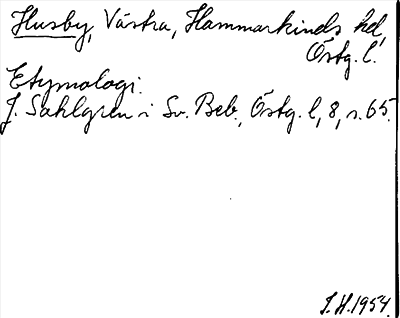 Husby, Västra, Hammarkinds hd,
Östg. l.
Etymologi.
J. Sahlgren i Sv. Beb., Östg. l, 8, s. 65.
I.H. 1954.